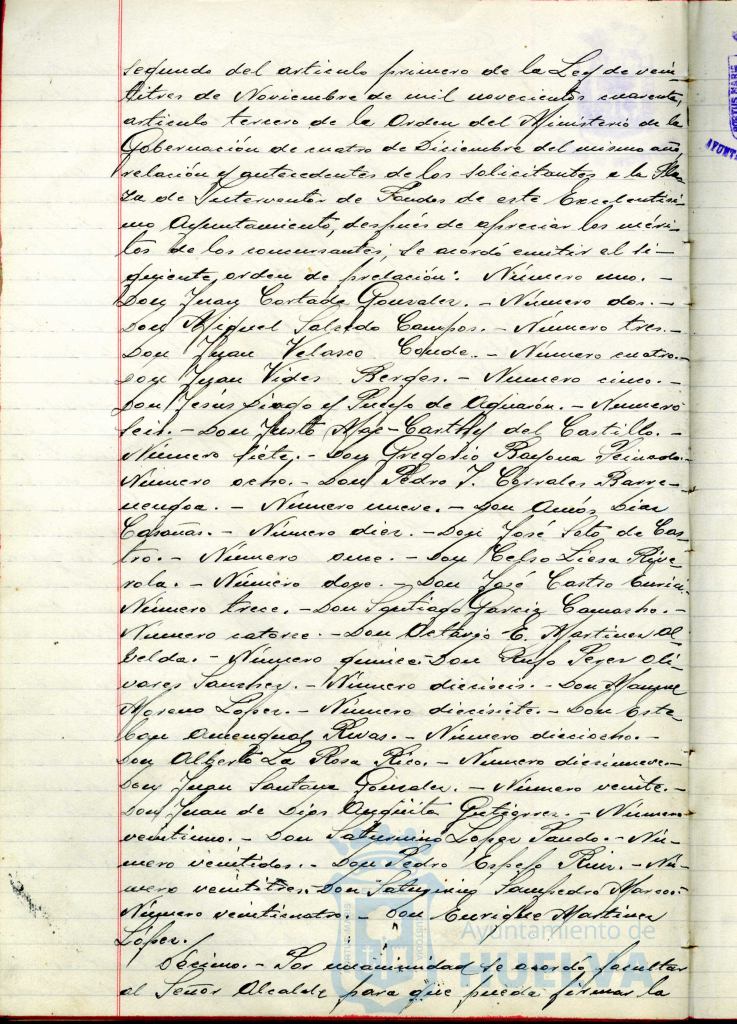 segundo del articulo primero de la Ley de vein
titres de Noviembre de mil novecientos cuarenta,
articulo tercero de la Orden del Ministerio de la
Gobernación de cuatro de Diciembre del mismo año
relación y antecedentes de los solicitantes a la Pla-
za de Interventor de Fondos de este Excelentisi-
mo Ayuntamiento, después de apreciar los méri-
tos de los concursantes, se acordó emitir el si-
guiente, orden de prelación: - Número uno. -
Don Juan Cortada Gonzalez. - Número dos. -
Don Miguel Salcedo Campos. - Número tres. -
Don Juan Velasco Conde. - Número cuatro. -
Don Juan Vides Berges. - Número cinco. -
Don Jesús Diago y Pueyo de Aguarón. - Número
seis. - Don Justo Mac-Carthy del Castillo. -
Número siete. - Don Gregorio Bayona Peinado. -
Número ocho. - Don Pedro J. Corrales Barre-
nengoa. - Número nueve. - Don Amós Diaz
Casañas. - Número diez. - Don José Soto de Cas-
tro. - Número once. - Don Celso Liesa Rive-
rola. - Número doce. - Don José Castro
Número trece. - Don Santiago Garcia Camacho. -
Número catorce. - Don Octavio E. Martinez Al-
belda. - Número quince. Don Rufo Perez Oli-
vares Sanchez. - Número dieciseis. - Don Manuel
Moreno Lopez. - Número diecisiete. - Don Este-
ban Amengual Rivas. - Número dieciocho. -
Don Alberto La Rosa Rico. - Número diecinueve. -
Don Juan Santana Gonzalez. - Número veinte. -
Don Juan de Dios Anguita Gutierrez. - Número
veintiuno. - Don Saturnino Lopez Pando. - Nú-
mero veintidos. - Don Pedro Espejo Ruiz. - Nú-
mero veintitres. - Don Saturnino Sampedro Marcos. -
Número veinticuatro. - Don Enrique Martinez
López.
Décimo. - Por unanimidad se acordó facultar
al Señor Alcalde para que pueda firmar la
Ayuntamiento de
HUELVA